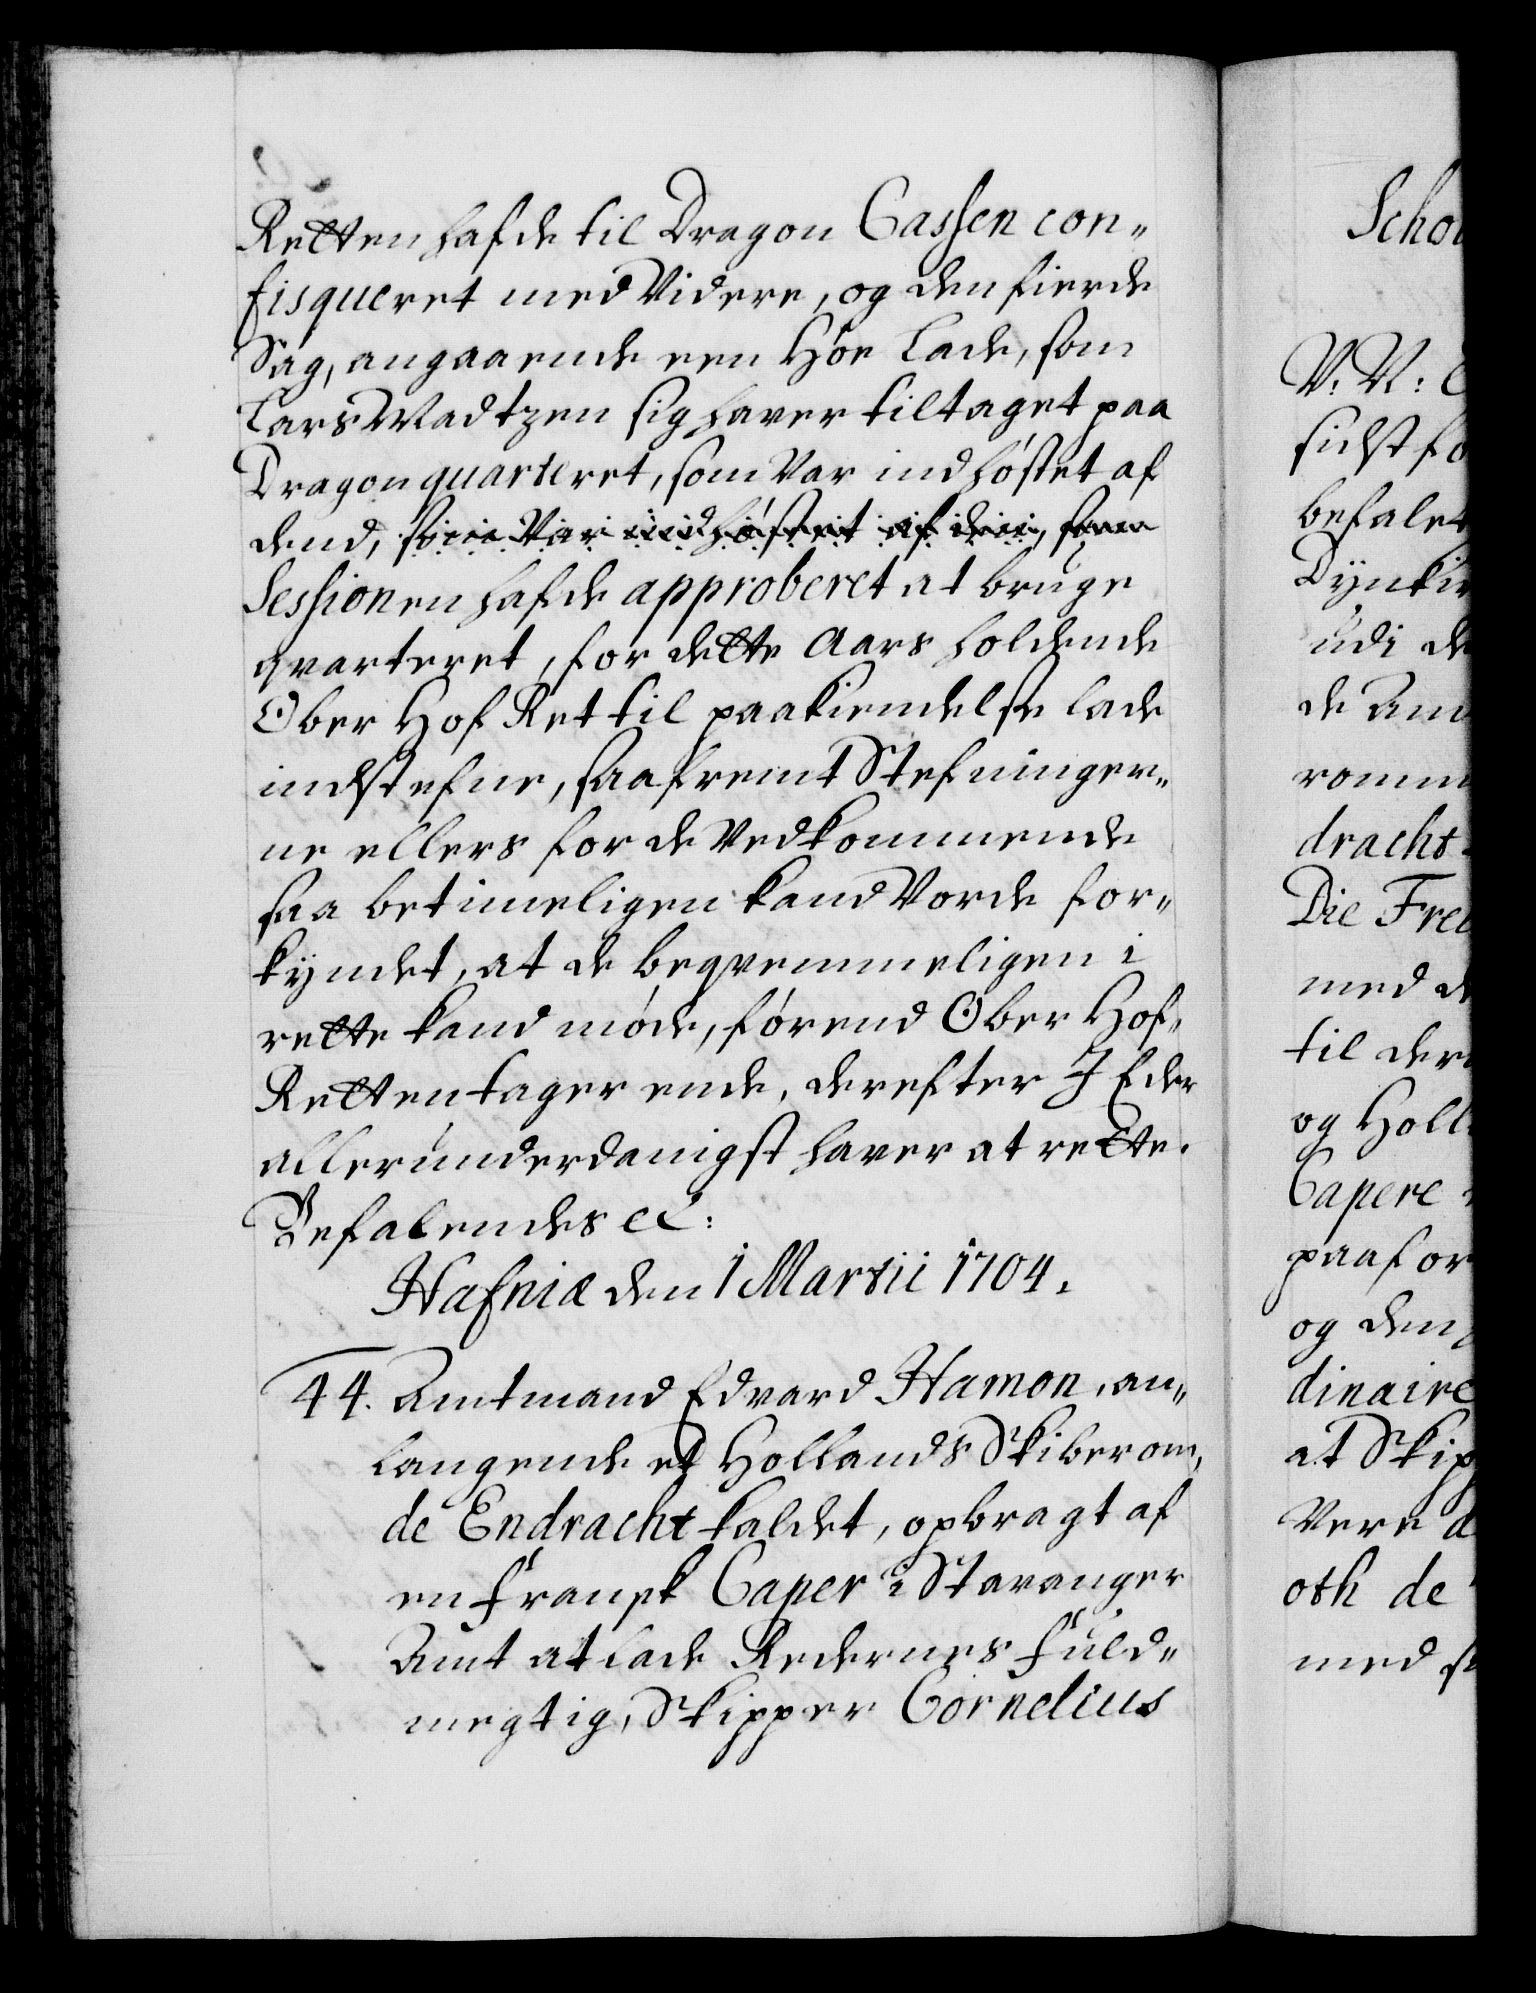 Retten hafde til Dragon Cassen con„
fisqueret med Videre, og den fierde
Sag, angaaende een Höe Lade, som
Lars Madtzen sig haver tiltaget paa
Dragon quarteret, som Var indhöstet af
dend, som Var indhöstet af den, som
Sessionen hafde approberet at bruge
qvarteret, for dette Aars holdende
Ober Hof Ret til paakiendelse lade
indstefne, saafremt Stefninger„
ne ellers for de Vedkommende
saa betimeligen kand Vorde for„
kyndet, at de beqvemmeligen i
rette kand möde, förend Ober Hof„
Retten tager ende, derefter I Eder
allerunderdanigst haver at rette.
Befalendes etc:
Hafniæ den 1 Martii 1704.
44. Amtmand Edvard Hamon, an„
langende et Hollands Skiberom,
de Endracht kaldet, opbragt af
en Fransk Caper i Stavanger
Amt at lade Redernes Fuld„
megtig, Skipper Cornelius
Schou
V. N:
sidst fo
befalet
Dynkir
udi de
de Am
romm
dracht
Die Fre
med d
til der
og Holl
Capere
paafor
og den
dinaire
at Skip
Vere d
oth de
med s